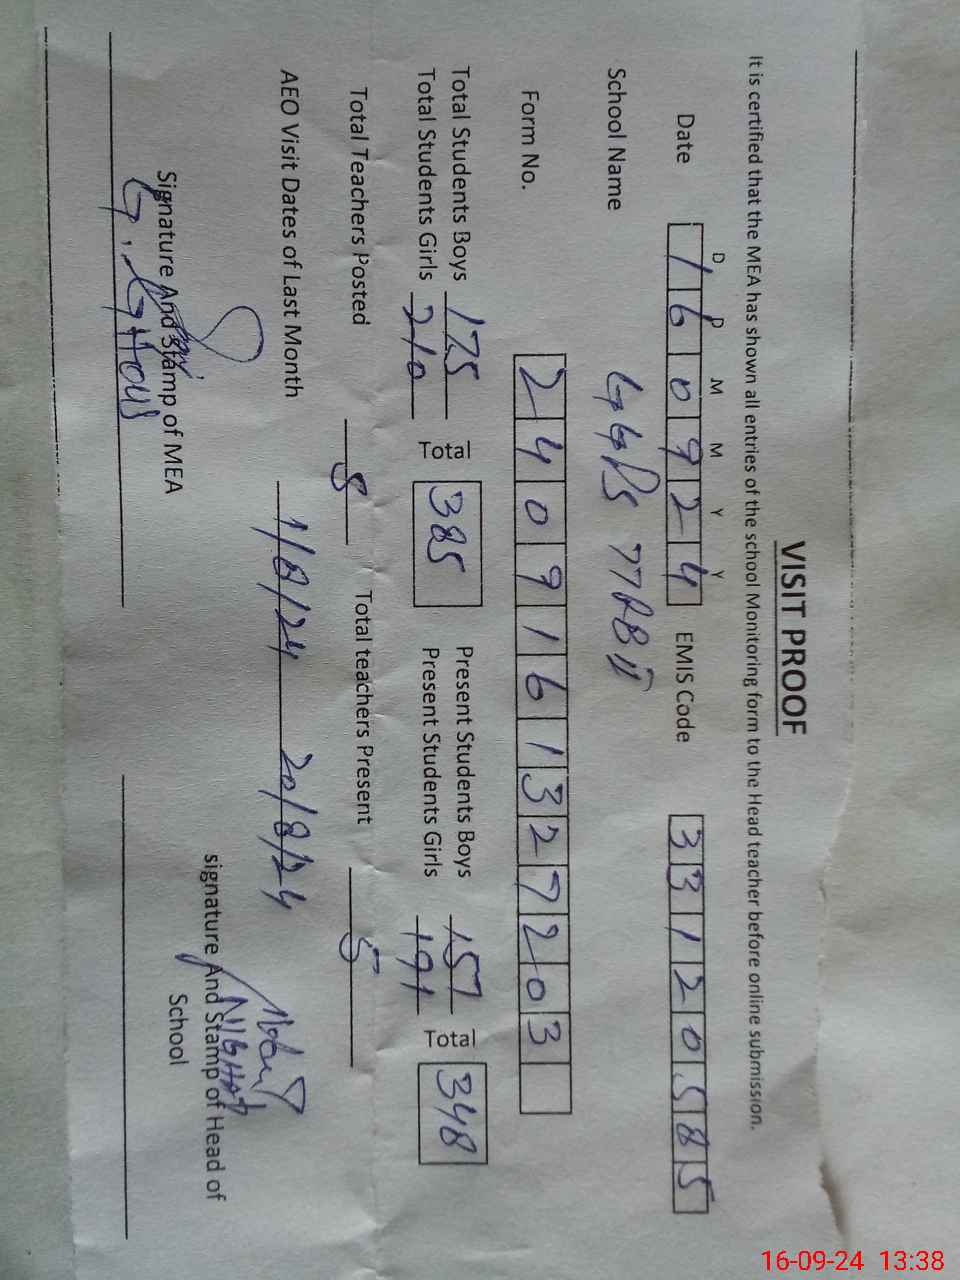 VISIT PROOF
It is certified that the MEA has shown all entries of the school Monitoring form to the Head teacher before online submission.
D D M M Y Y
Date 160924 EMIS Code 33120585
School Name GGPS 77RB II
Form No. 2409161327203
Total Students Boys 175 Present Students Boys 157
Total Students Girls 210 Total 385 Present Students Girls 191 Total 348
Total Teachers Posted 8 Total teachers Present 5
AEO Visit Dates of Last Month 1/8/24 20/8/24
Signature And Stamp of MEA
G. GHOUS
signature And Stamp of Head of School
NIGHAT
16-09-24 13:38